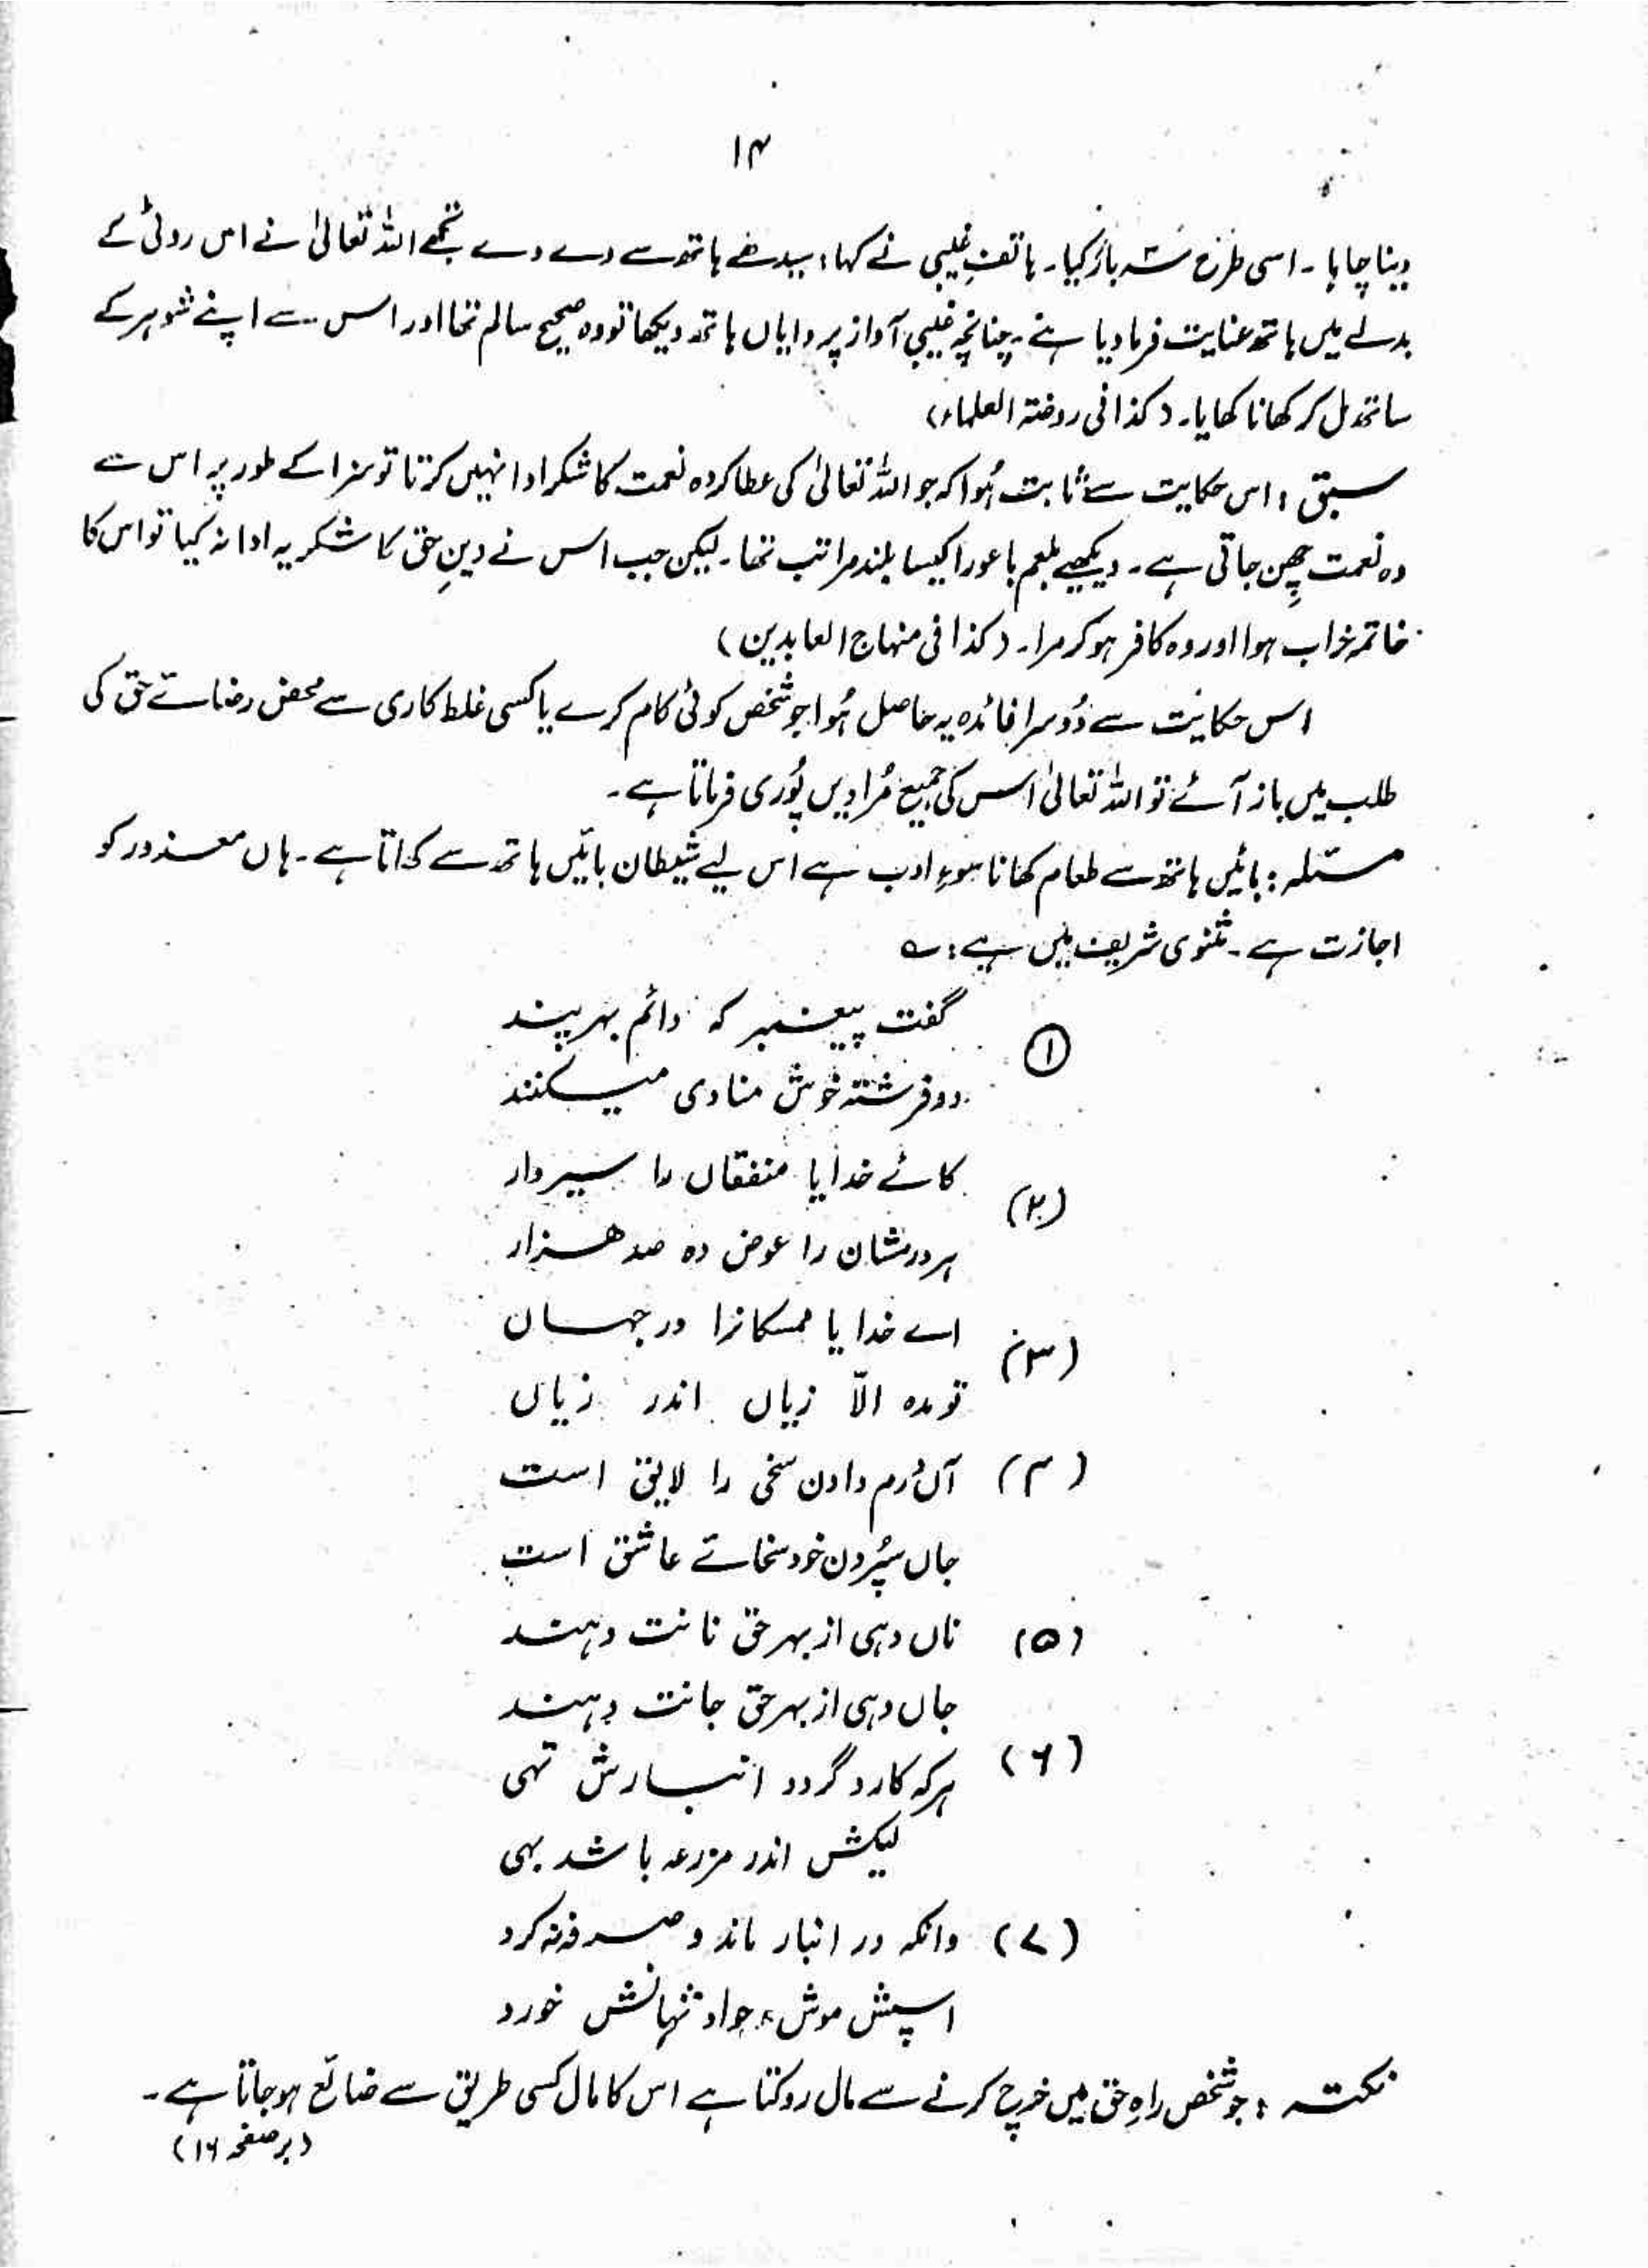 ۱۴
دینا چاہا ۔ اسی طرح سہ بار کیا ۔ ہاتفِ غیبی نے کہا : سیدھے ہاتھ سے دے دے تجھے اللہ تعالیٰ نے اس روٹی کے
بدلے میں ہاتھ عنایت فرما دیا ہے ۔ چنانچہ غیبی آواز پر دایاں ہاتھ دیکھا تو وہ صحیح سالم تھا اور اس سے اپنے شوہر کے
ساتھ مل کر کھانا کھایا ۔ (کذا فی روضۃ العلماء)
سبق : اس حکایت سے ثابت ہُوا کہ جو اللہ تعالیٰ کی عطا کردہ نعمت کا شکر ادا نہیں کرتا تو سزا کے طور پر اس سے
وہ نعمت چِھن جاتی ہے ۔ دیکھیے بلعم باعورا کیسا بلند مراتب تھا ۔ لیکن جب اس نے دینِ حق کا شکریہ ادا نہ کیا تو اس کا
خاتمہ خراب ہوا اور وہ کافر ہو کر مرا ۔ (کذا فی منہاج العابدین)
اس حکایت سے دُوسرا فائدہ یہ حاصل ہُوا جو شخص کوئی کام کرے یا کسی غلط کاری سے محض رضائے حق کی
طلب میں باز آئے تو اللہ تعالیٰ اس کی جمیع مُرادیں پُوری فرماتا ہے ۔
مسئلہ : بائیں ہاتھ سے طعام کھانا سوءِ ادب ہے اس لیے شیطان بائیں ہاتھ سے کھاتا ہے ۔ ہاں معذور کو
اجازت ہے ۔ مثنوی شریف میں ہے : ؎
① گفت پیغمبر کہ دائم بہر پند
دو فرشتہ خوش منادی میکنند
(۲) کائے خدایا منفقاں را سیر دار
ہر درمشان را عوض دہ صد ھزار
(۳) اے خدایا ممسکانرا در جہاں
تو مدہ الّا زیاں اندر زیاں
(۴) آں درم دادن سخی را لایق است
جاں سپُردن خود سخائے عاشق است
(۵) ناں دہی از بہر حق نانت دہند
جاں دہی از بہر حق جانت دہند
(۶) ہر کہ کارد گردد انبارش تہی
لیکش اندر مزرعہ باشد بہی
(۷) وانکہ در انبار ماند و صرفہ کرد
اسپش موش و حوادثہانش خورد
نکتہ : جو شخص راہِ حق میں خرچ کرنے سے مال روکتا ہے اس کا مال کسی طریق سے ضائع ہو جاتا ہے ۔
(بر صفحہ ۱۶)